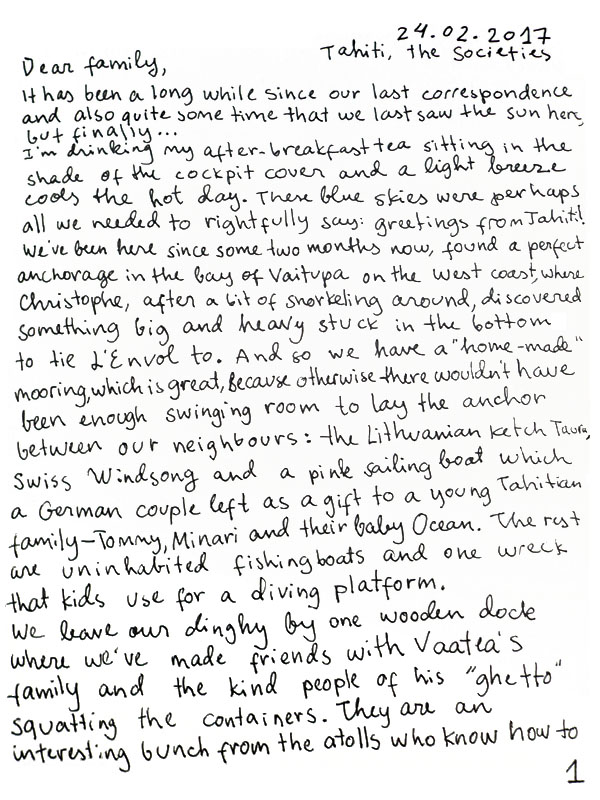 24.02.2017
Tahiti, the Societies
Dear family,
It has been a long while since our last correspondence
and also quite some time that we last saw the sun here,
but finally...
I'm drinking my after-breakfast tea sitting in the
shade of the cockpit cover and a light breeze
cools the hot day. These blue skies were perhaps
all we needed to rightfully say: greetings from Tahiti!
We've been here since some two months now, found a perfect
anchorage in the bay of Vaitupa on the west coast, where
Christophe, after a bit of snorkeling around, discovered
something big and heavy stuck in the bottom
to tie L'Envol to. And so we have a "home-made"
mooring, which is great, because otherwise there wouldn't have
been enough swinging room to lay the anchor
between our neighbours: the Lithuanian ketch Taura,
Swiss Windsong and a pink sailing boat which
a German couple left as a gift to a young Tahitian
family-Tommy, Minari and their baby Ocean. The rest
are uninhabited fishingboats and one wreck
that kids use for a diving platform.
We leave our dinghy by one wooden dock
where we've made friends with Vaatea's
family and the kind people of his "ghetto"
squatting the containers. They are an
interesting bunch from the atolls who know how to
1